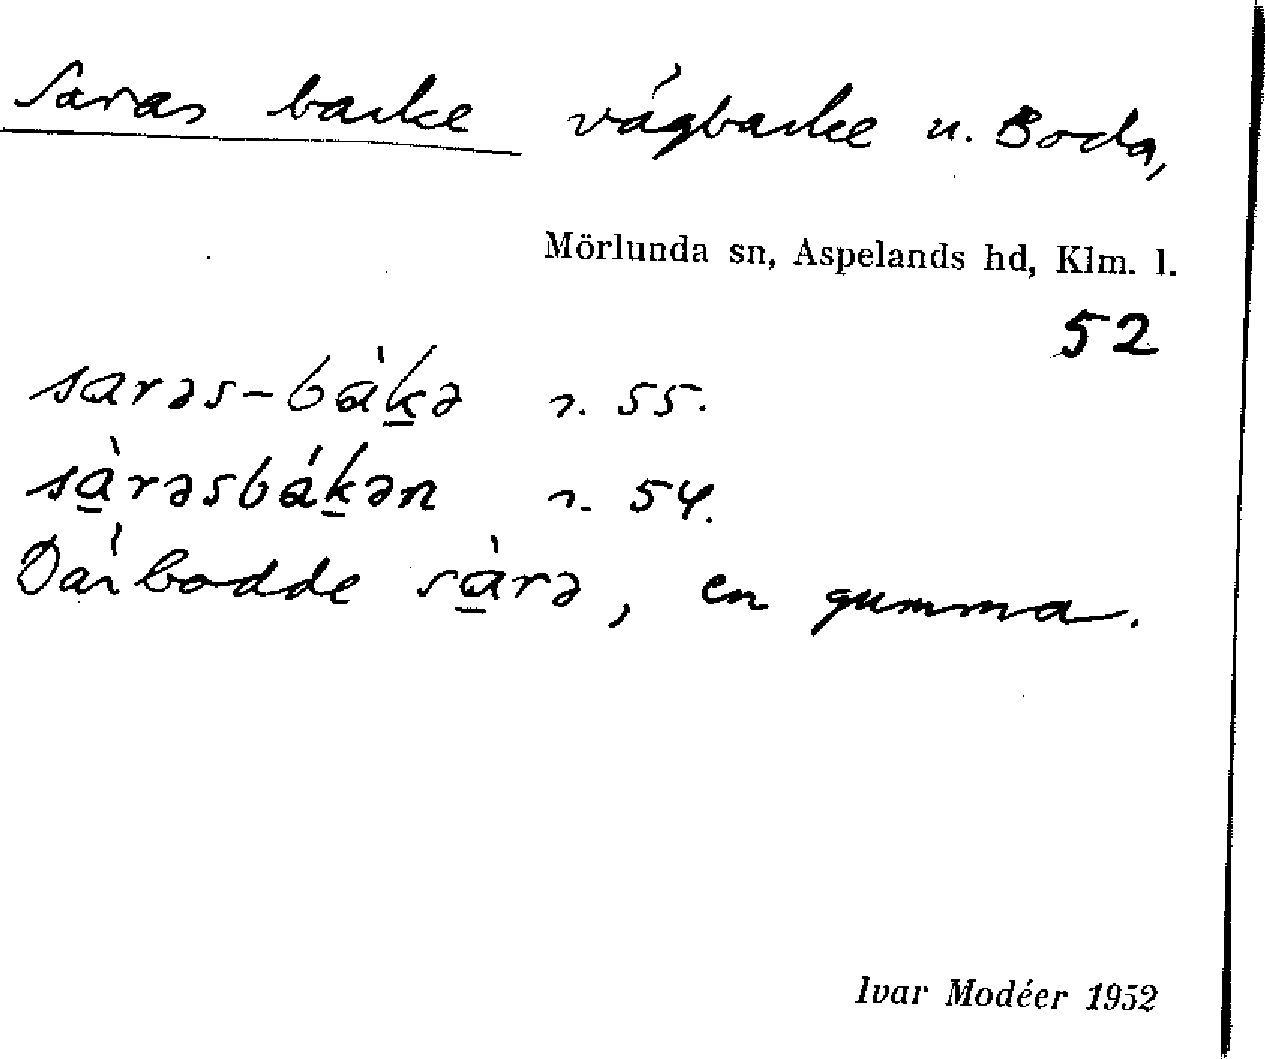 Saras backe vägbacke n. Boda,
Mörlunda sn, Aspelands hd, Klm. l.
52
sarəs-bàk̲ə s. 55.
sà̲rəsbák̲ən s. 54.
Där bodde sà̲rə, en gumma.
Ivar Modéer 1952